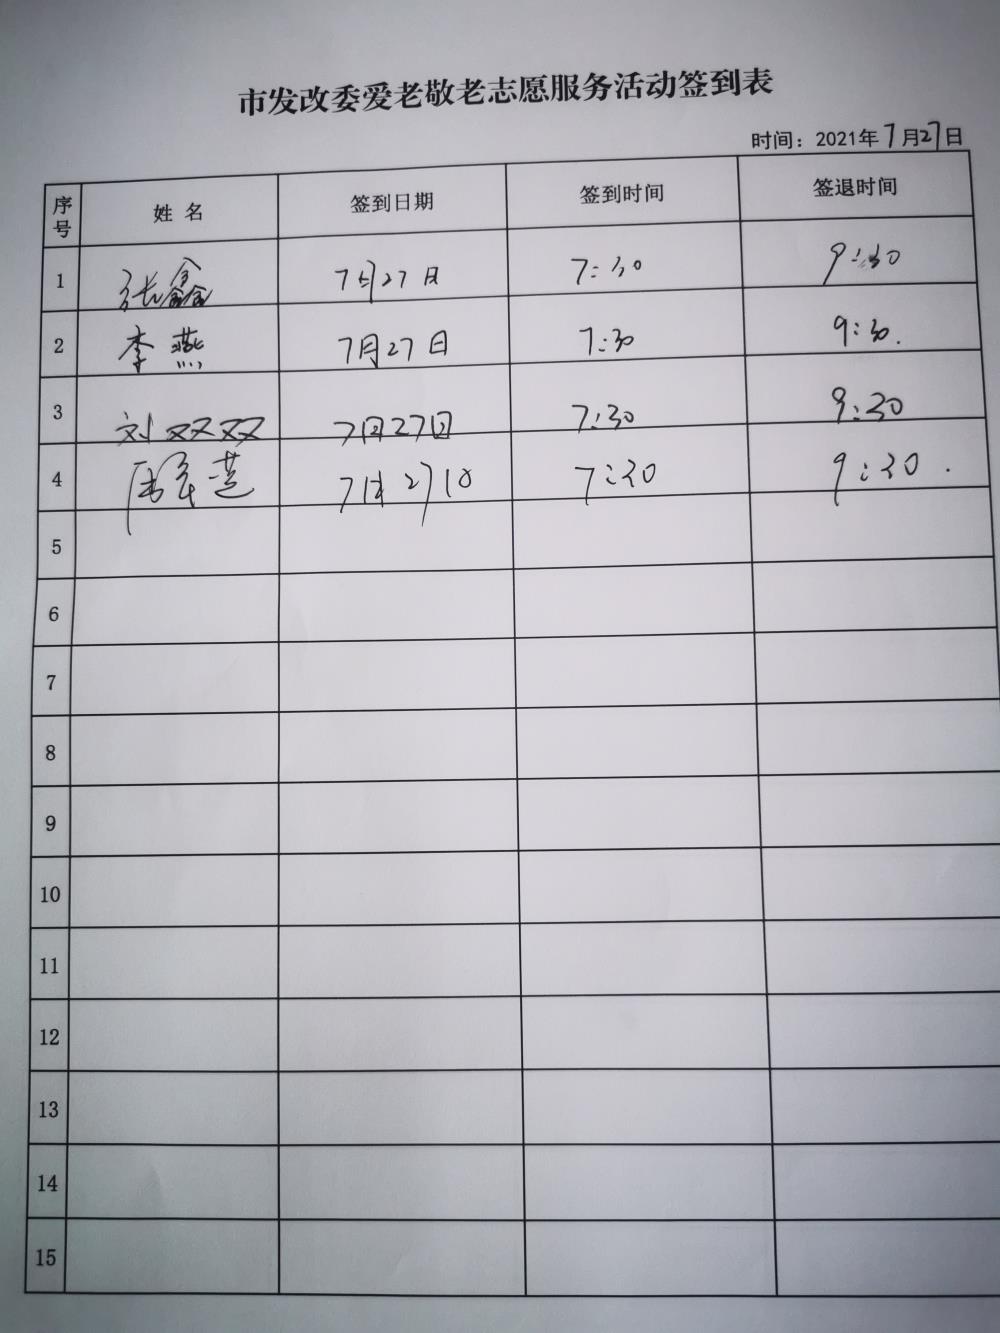 市发改委爱老敬老志愿服务活动签到表
时间：2021年7月27日
序号 姓 名 签到日期 签到时间 签退时间
1 张鑫 7月27日 7:30 9:30
2 李燕 7月27日 7:30 9:30.
3 刘双双 7月27日 7:30 9:30
4 7月27日 7:30 9:30.
5
6
7
8
9
10
11
12
13
14
15